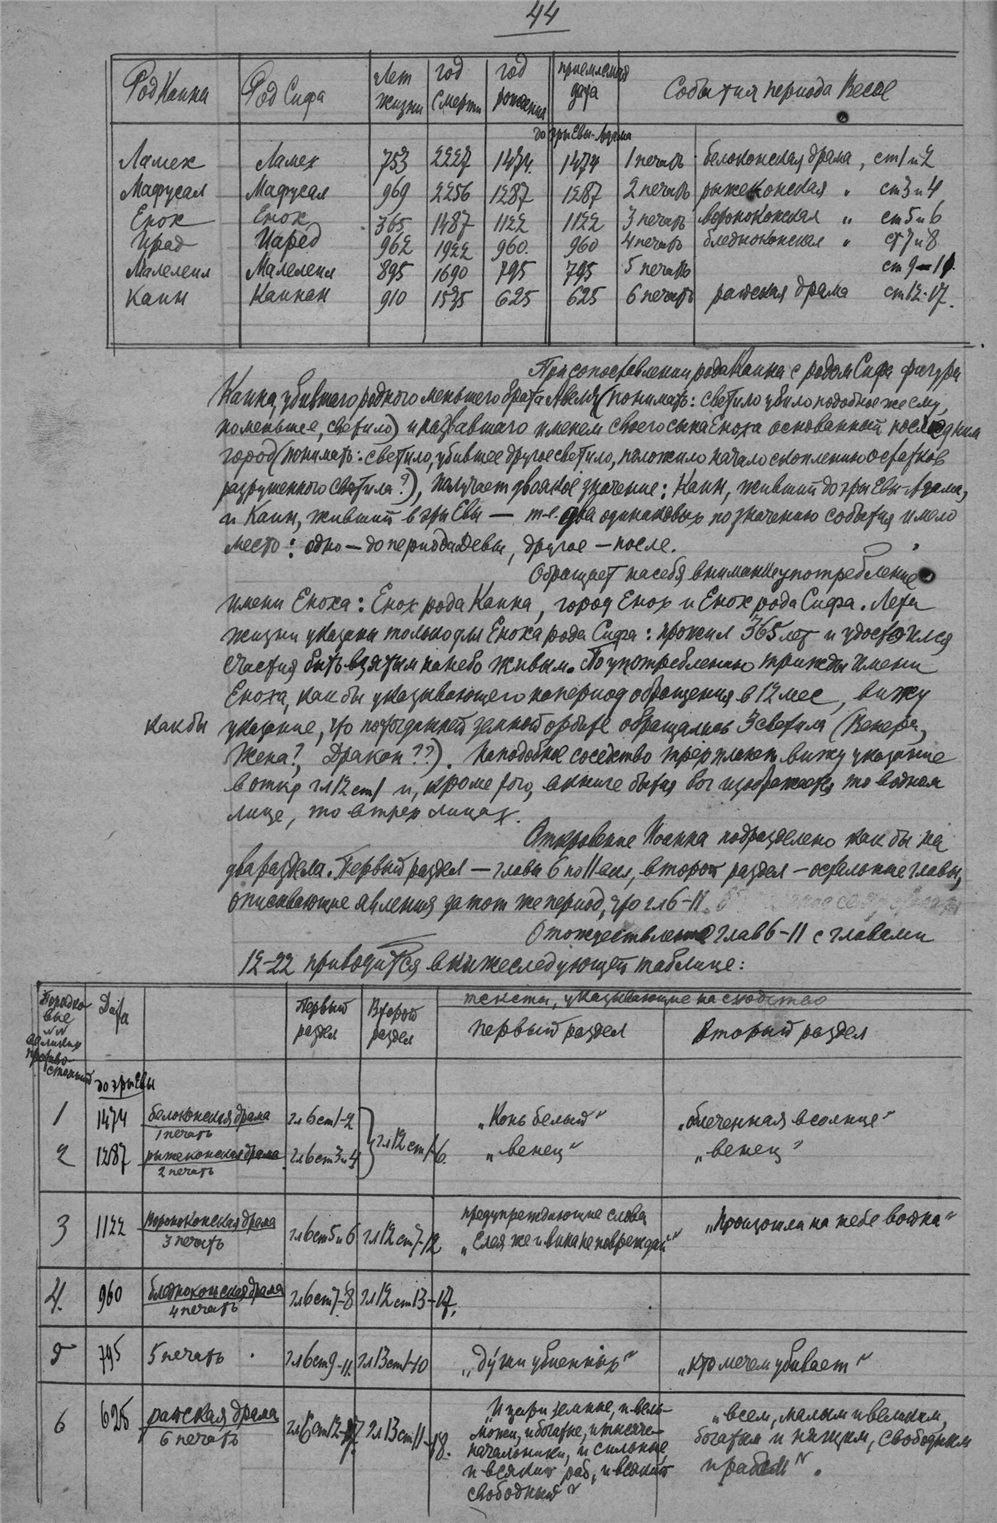 44
Род Каина | Род Сифа | Лет жизни | год смерти | год рождения | приемлемая дата | События периода Весов
до эры Евы-Адама
Ламех | Ламех | 753 | 2227 | 1474 | 1474 | 1 печать | белоконская драма, ст 1 и 2
Мафусал | Мафусал | 969 | 2256 | 1287 | 1287 | 2 печать | рыжеконская " ст 3 и 4
Енох | Енох | 365 | 1487 | 1122 | 1122 | 3 печать | вороноконская " ст 5 и 6
Ирад | Иаред | 962 | 1922 | 960 | 960 | 4 печать | бледноконская " ст 7 и 8
Малелеил | Малелеил | 895 | 1690 | 795 | 795 | 5 печать | ст 9-11
Каин | Каинан | 910 | 1535 | 625 | 625 | 6 печать | райская драма ст 12-17.
При сопоставлении рода Каина с родом Сифа фигура
Каина, убившего родного меньшего брата Авеля (понимать: светило убило подобное же ему,
но меньшее, светило) и назвавшего именем своего сына Еноха основанный последним
город (понимать: светило, убившее другое светило, положило начало скоплению остатков
разрушенного светила?), получает двоякое значение: Каин, живший до эры Евы-Адама,
и Каин, живший в эры Евы — т.е. два одинаковых по значению события имело
место: одно — до периода Девы, другое — после.
Обращает на себя внимание употребление
имени Еноха: Енох рода Каина, город Енох и Енох рода Сифа. Лета
жизни указаны только для Еноха рода Сифа: прожил 365 лет и удостоился
счастия быть взятым на небо живым. По употреблению трижды имени
Еноха, как бы указывающего на период обращения в 12 мес, вижу
как бы указание, что по тогдашней земной орбите обращались 3 светила (Венера,
Жена?, Дракон??). На подобное соседство трех планет вижу указание
в откр гл 12 ст 1 и, кроме того, в книге бытия бог изображается то в одном
лице, то в трех лицах.
Откровение Иоанна подразделено как бы на
два раздела. Первый раздел — главы 6 по 11 вкл, второй раздел — остальные главы,
описывающие явления за тот же период, что гл 6-11.
Отождествление глав 6-11 с главами
12-22 приводится в нижеследующей таблице:
Порядковые противостояний | Дата | Первый раздел | Второй раздел | тексты, указывающие на сходство
первый раздел | Второй раздел
до эры Евы
1 | 1474 | белоконская драма 1 печать | гл 6 ст 1-2 | гл 12 ст 1-6. | „Конь белый" | „облеченная в солнце"
2 | 1287 | рыжеконская драма 2 печать | гл 6 ст 3 и 4 | „венец" | „венец"
3 | 1122 | вороноконская драма 3 печать | гл 6 ст 5 и 6 | гл 12 ст 7-12 | предупреждающие слова „Елея же и вина не повреждай" | „Произошла на небе война"
4. | 960 | бледноконская драма 4 печать | гл 6 ст 7-8 | гл 12 ст 13-17.
5 | 795 | 5 печать | гл 6 ст 9-11 | гл 13 ст 1-10 | „души убиенных" | „кто мечем убивает"
6 | 625 | райская драма 6 печать | гл 6 ст 12-17 | гл 13 ст 11-18. | „И цари земные, и вельможи, и богатые, и тысяченачальники, и сильные и всякий раб, и всякий свободный" | „всем, малым и великим, богатым и нищим, свободным и рабам".